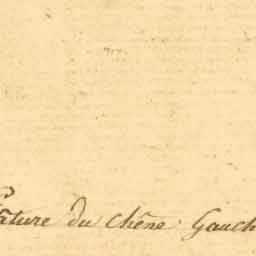 Pâture du Chêne Gauch